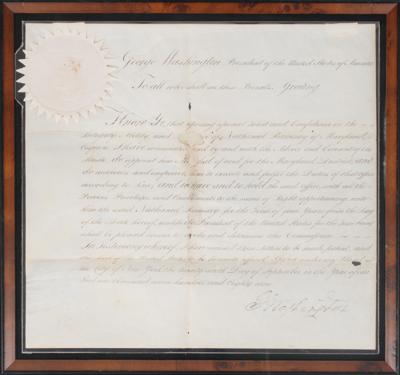 George Washington President of the United States of America
To all who shall see these Presents Greeting
Know Ye, that reposing special Trust and Confidence in the
Integrity, Ability and of Nathaniel Ramsay of Maryland,
Esquire I have nominated, and by and with the Advice and Consent of the
Senate do appoint him Marshal of and for the Maryland District, and
do authorize and empower him to execute and fulfil the Duties of that Office
according to Law, and to have and to hold the said Office, with all the
Powers, Privileges and Emoluments to the same of Right appertaining unto
him the said Nathaniel Ramsay for the Term of four Years from the Day
of the Date hereof, unless the President of the United States for the time being
shall be pleased sooner to revoke and determine this Commission
In Testimony whereof I have caused these Letters to be made patent, and
the Seal of the United States to be hereunto affixed Given under my Hand at
the City of New York the twenty sixth Day of September in the Year of our
Lord one thousand seven hundred and Eighty nine
G Washington